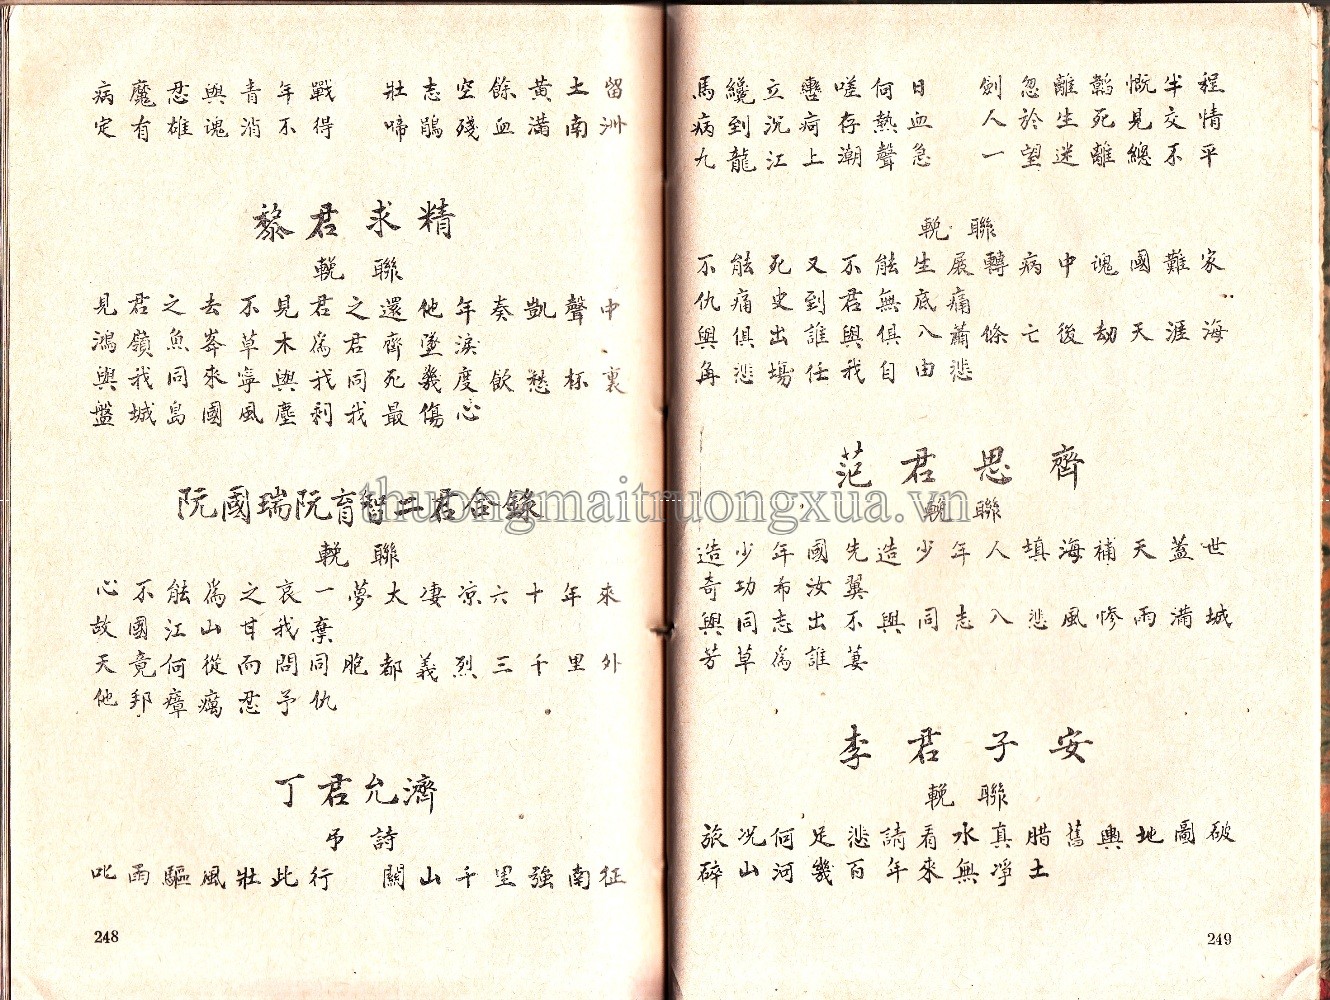 病魔忍與青年戰 壯志空餘黃土留
定有雄魂消不得 啼鵑殘血滿南洲
黎君求精
輓聯
見君之去不見君之還他年奏凱聲中
鴻嶺魚峯草木為君齊墜淚
與我同來寧與我同死幾度飲愁杯裏
盤城島國風塵剩我最傷心
阮國瑞阮育智二君合錄
輓聯
心不能為之哀一夢太凄凉六十年來
故國江山甘我棄
天竟何從而問同胞都義烈三千里外
他邦瘴癘忍予仇
丁君允濟
吊詩
叱雨驅風壯此行 關山千里強南征
248
馬纔立轡嗟何日 劍忽離韜慨半程
病到沉疴存熱血 人於生死見交情
九龍江上潮聲急 一望迷離總不平
輓聯
不能死又不能生展轉病中魂國難家
仇痛史到君無底痛
與俱出誰與俱入蕭條亡後劫天涯海
角悲場任我自由悲
范君思齊
輓聯
造少年國先造少年人填海補天蓋世
奇功希汝翼
與同志出不與同志入悲風慘雨滿城
芳草為誰萋
李君子安
輓聯
旅况何足悲請看水真腊舊輿地圖破
碎山河幾百年來無凈土
249
thuongmaitruongxua.vn